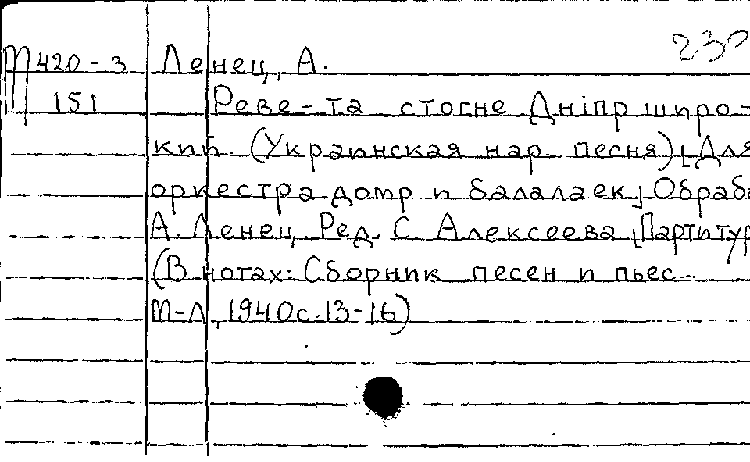 230
М 420-3 Ленец, А.
151 Реве-та стогне Дніпр широ-
кий. (Украинская нар. песня) [Для
оркестра домр и балалаек] Обраб
А. Ленец, Ред. С. Алексеева [Партитур
(В нотах: Сборник песен и пьес.
М-Л, 1940 с. 13-16)